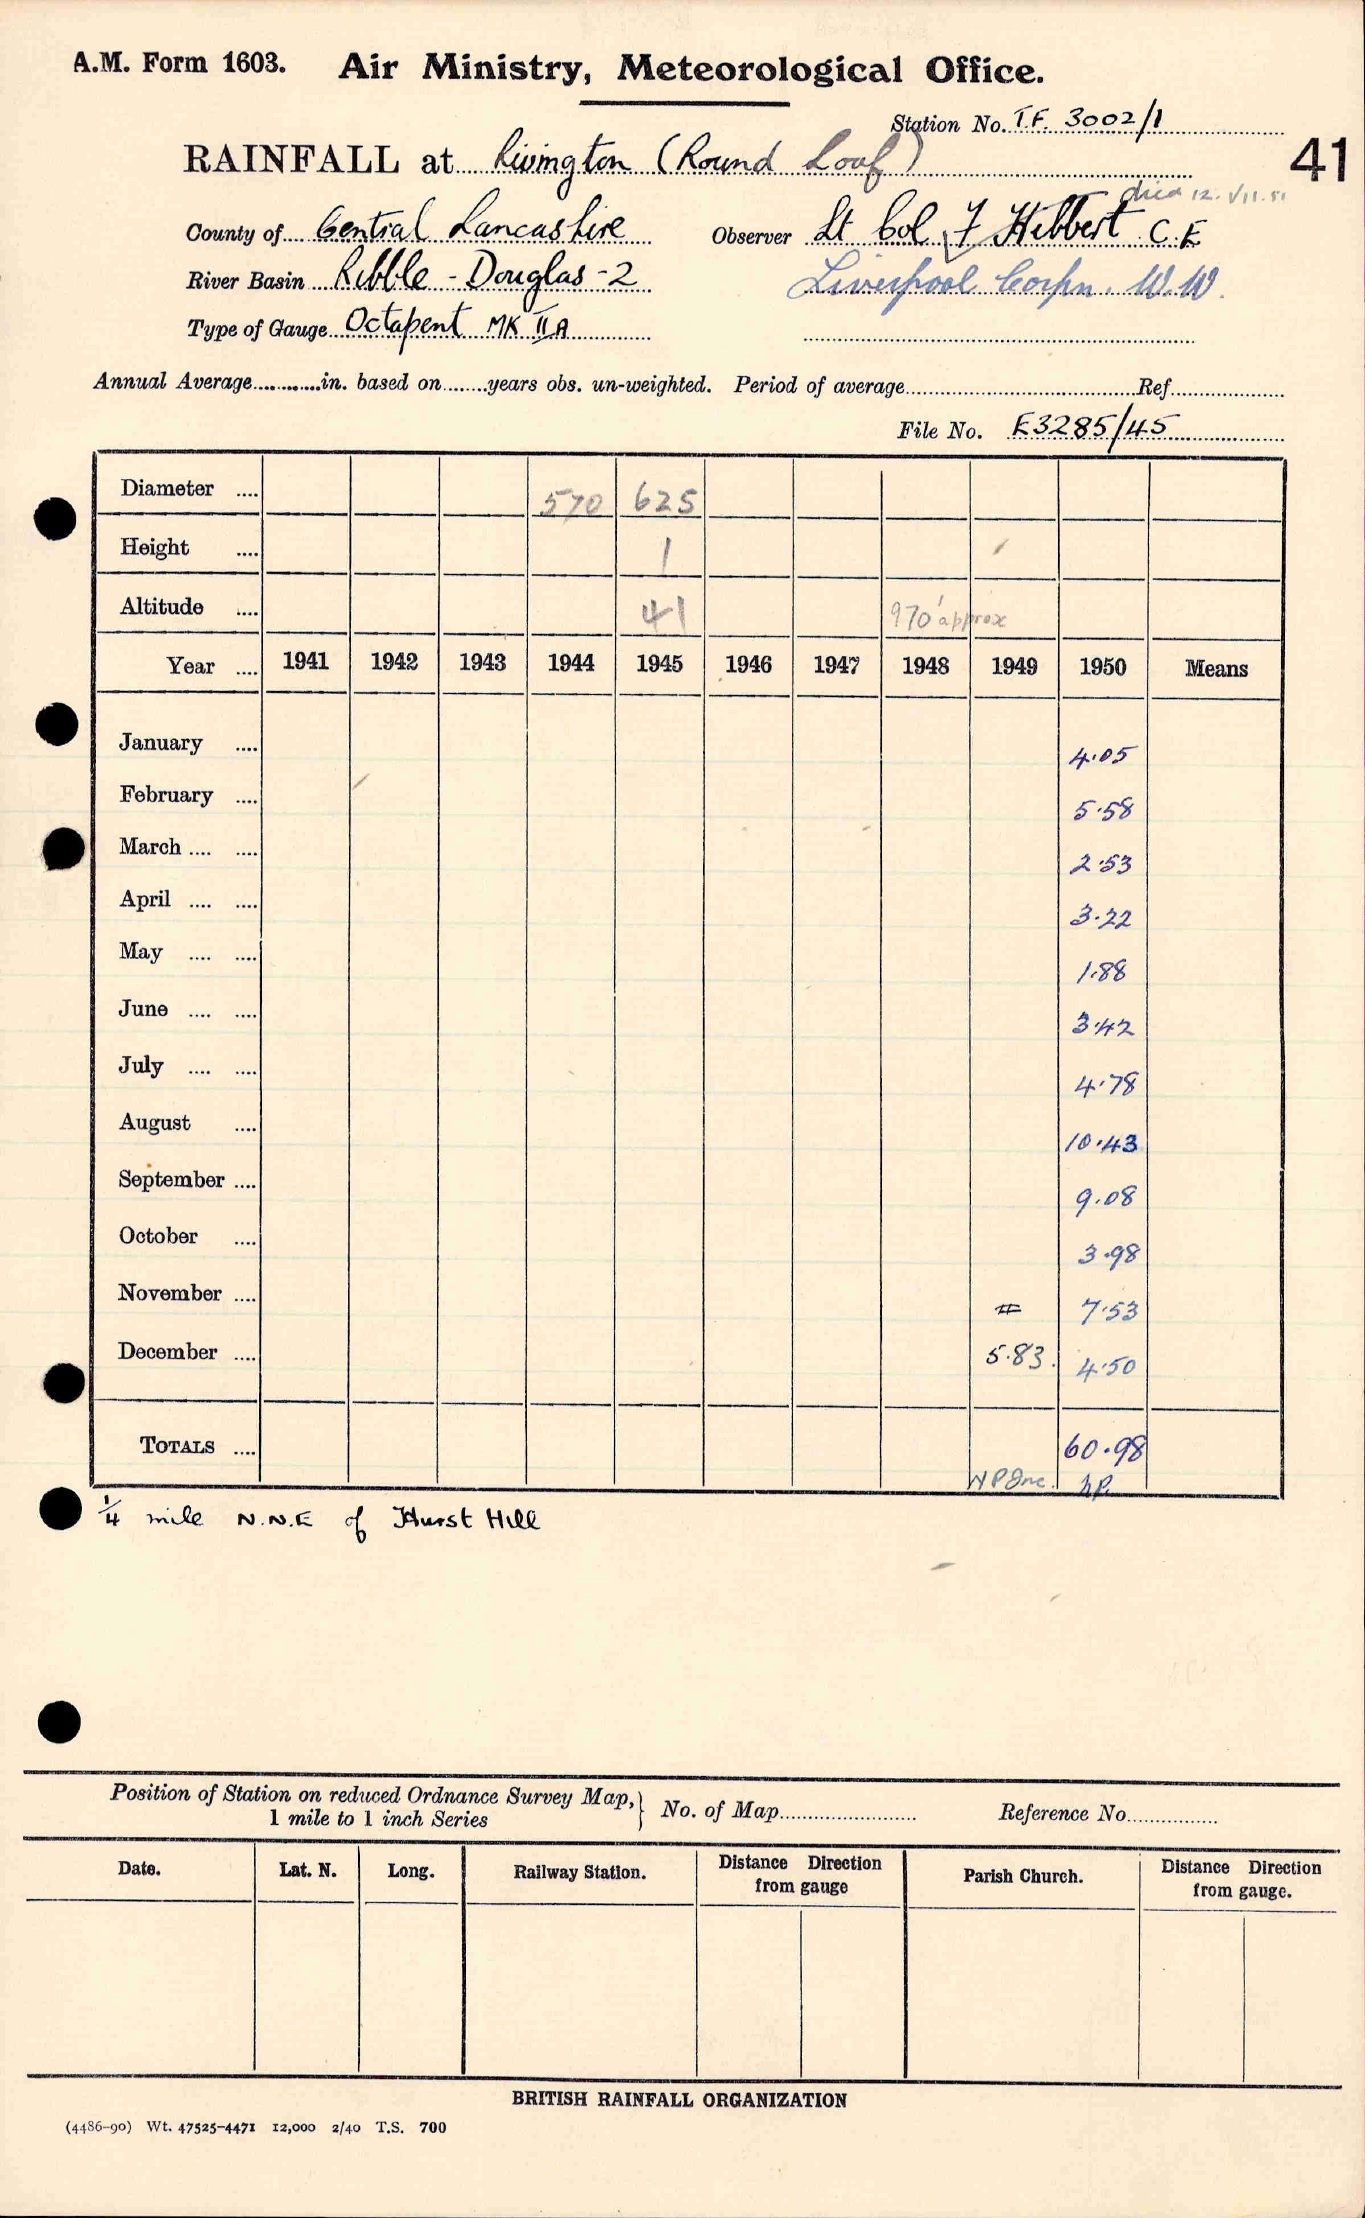 A.M. Form 1603. Air Ministry, Meteorological Office.
Station No. T.F. 3002/1
RAINFALL at Rivington (Round Loaf)
41
died 12.
County of Central Lancashire Observer Lt Col F Hibbert C.E
River Basin Ribble - Douglas - 2 Liverpool Corpn. W.W.
Type of Gauge Octapent MK II A
Annual Average............in. based on........years obs. un-weighted. Period of average Ref.
File No. E3285/45
Diameter .... 570 625
Height .... 1
Altitude .... 41 970' approx
Year .... 1941 1942 1943 1944 1945 1946 1947 1948 1949 1950 Means
January .... 4.05
February .... 5.58
March .... .... 2.53
April .... .... 3.22
May .... .... 1.88
June .... .... 3.42
July .... .... 4.78
August .... 10.43
September .... 9.08
October .... 3.98
November .... # 7.53
December .... 5.83. 4.50
TOTALS .... 60.98
NP Inc. NP.
1/4 mile N.N.E of Hurst Hill
Position of Station on reduced Ordnance Survey Map, } No. of Map Reference No.
1 mile to 1 inch Series
Date. Lat. N. Long. Railway Station. Distance Direction from gauge Parish Church. Distance Direction from gauge.
BRITISH RAINFALL ORGANIZATION
(4486-90) Wt. 47525-4471 12,000 2/40 T.S. 700